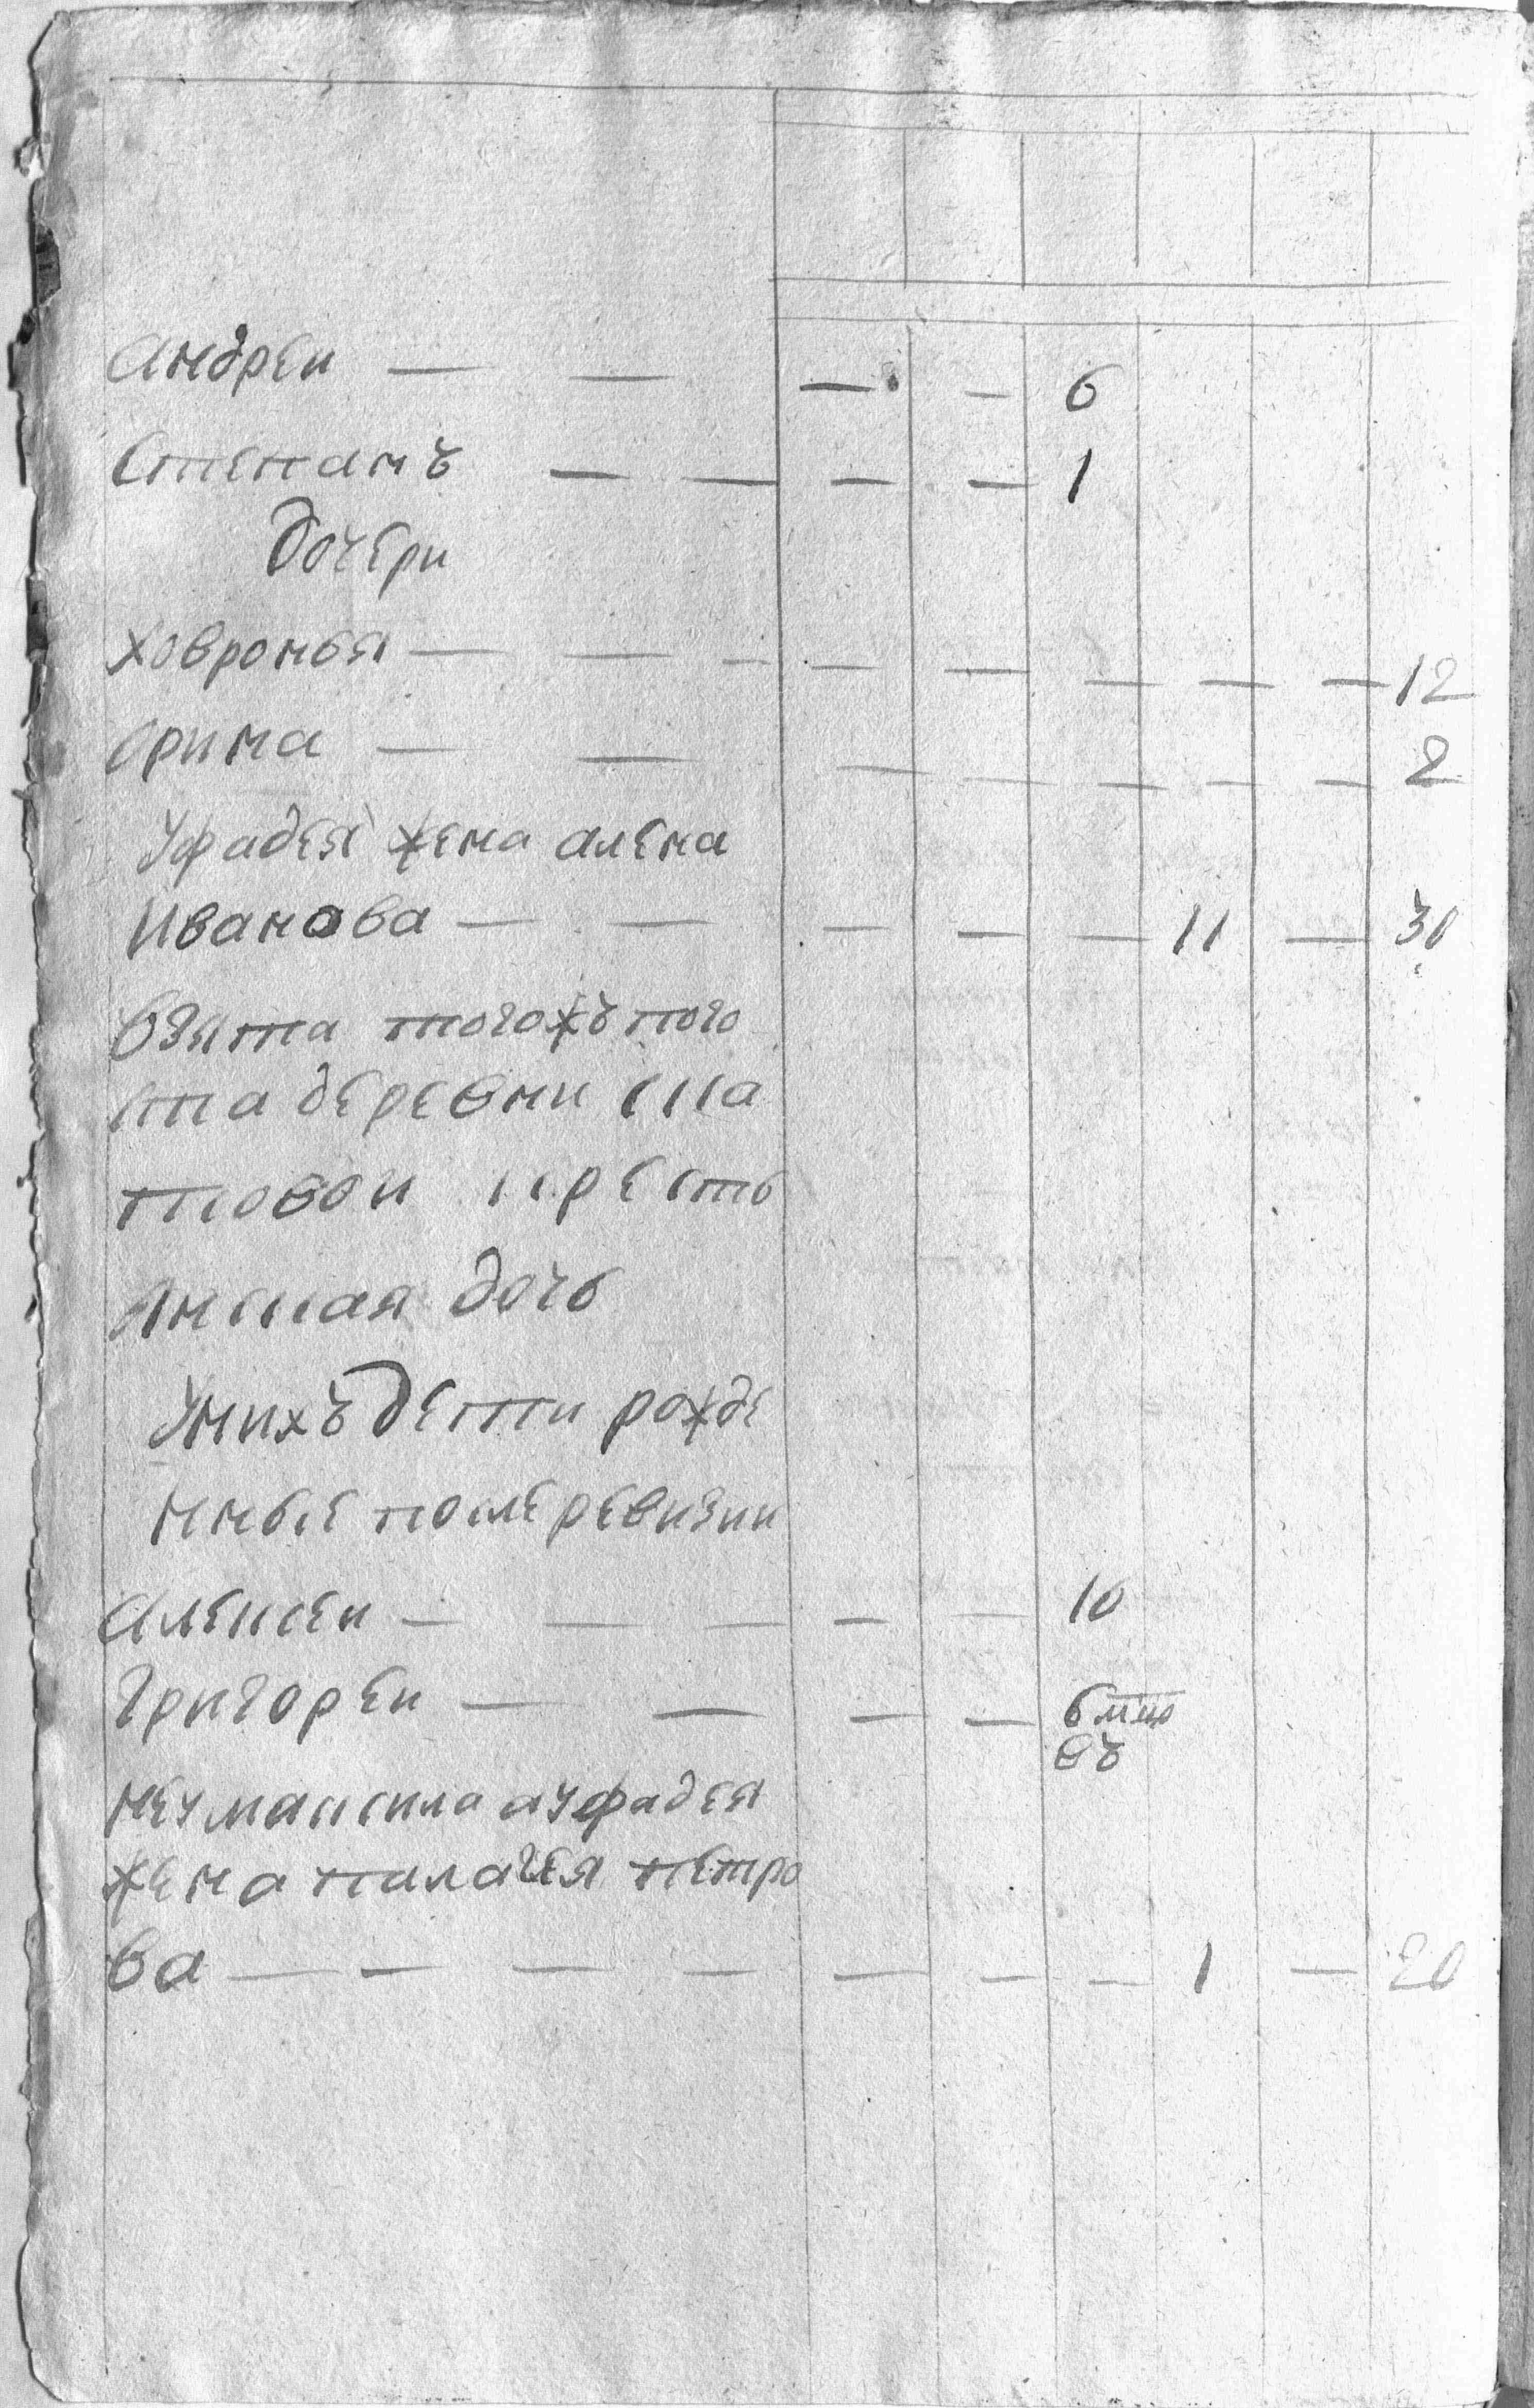 андреи — — — — 6
степанъ — — — — 1
дочери
ховронья — — — — — — — — 12
орина — — — — — — — 2
уфадея жена алена
иванова — — — — — 11 — 30
взята тогожъ пого
ста деревни
крестъ
янская дочь
унихъ дети рожде
нные после ревизии
алексеи — — — — — 10
григореи — — — — 6 мцо
въ
неумаксима ауфадея
жена палагея петро
ва — — — — — — — 1 — 20